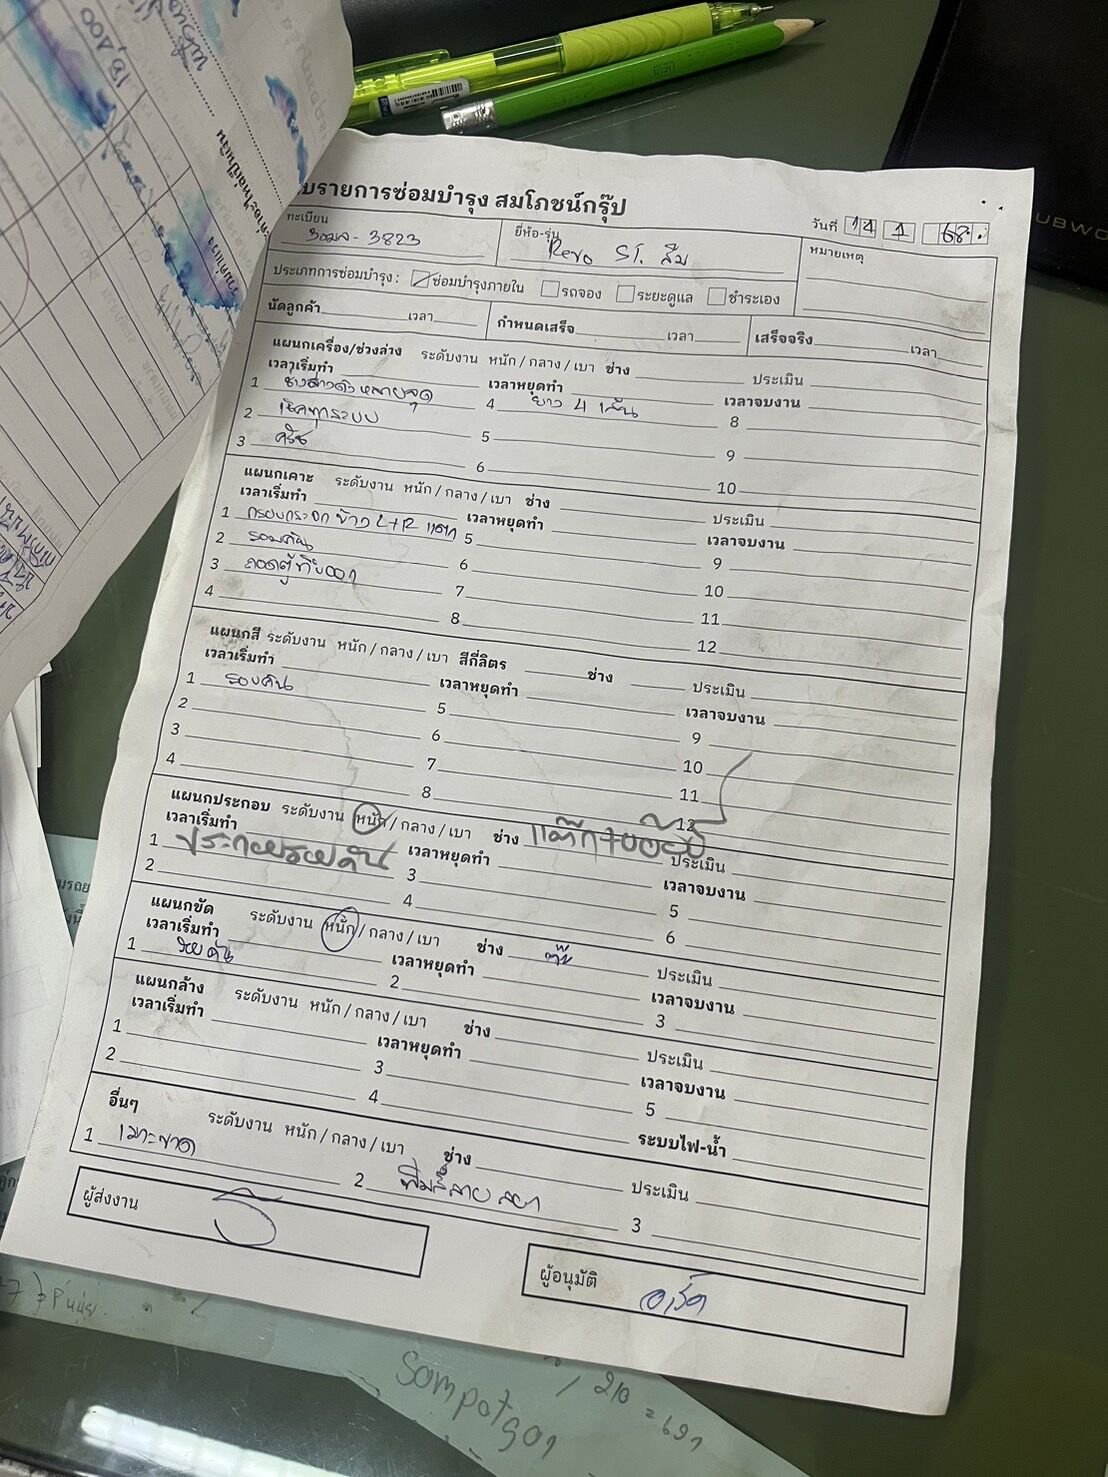 บรายการซ่อมบำรุง สมโภชน์กรุ๊ป
วันที่ 14 1 68
ทะเบียน 3823
ยี่ห้อ-รุ่น Revo ST. ส้ม
หมายเหตุ
ประเภทการซ่อมบำรุง : ซ่อมบำรุงภายใน รถจอง ระยะดูแล ชำระเอง
นัดลูกค้า เวลา กำหนดเสร็จ เวลา เสร็จจริง เวลา
แผนกเครื่อง/ช่วงล่าง ระดับงาน หนัก / กลาง / เบา ช่าง ประเมิน
เวลาเริ่มทำ เวลาหยุดทำ เวลาจบงาน
1 ช่วงล่างดัง หลายจุด 4 ยาง 4 เส้น 8
2 เช็คทุกระบบ 5 9
3 ครัช 6 10
แผนกเคาะ ระดับงาน หนัก / กลาง / เบา ช่าง ประเมิน
เวลาเริ่มทำ เวลาหยุดทำ เวลาจบงาน
1 กรอบกระจก ข้าง L+R แตก 5 9
2 รอบคัน 6 10
3 ถอดตู้ทึบออก 7 11
4 8 12
แผนกสี ระดับงาน หนัก / กลาง / เบา สีกี่ลิตร ช่าง ประเมิน
เวลาเริ่มทำ เวลาหยุดทำ เวลาจบงาน
1 รอบคัน 5 9
2 6 10
3 7 11
4 8 12
แผนกประกอบ ระดับงาน หนัก / กลาง / เบา ช่าง ประเมิน
เวลาเริ่มทำ เวลาหยุดทำ เวลาจบงาน
1 ประกอบรอบคัน 3 5
2 4 6
แผนกขัด ระดับงาน หนัก / กลาง / เบา ช่าง ประเมิน
เวลาเริ่มทำ เวลาหยุดทำ เวลาจบงาน
1 รอบคัน 2 3
แผนกล้าง ระดับงาน หนัก / กลาง / เบา ช่าง ประเมิน
เวลาเริ่มทำ เวลาหยุดทำ เวลาจบงาน
1 3 5
2 4 ระบบไฟ-น้ำ
อื่นๆ ระดับงาน หนัก / กลาง / เบา ช่าง ประเมิน
1 เบาะขาด 2 3
ผู้ส่งงาน
ผู้อนุมัติ